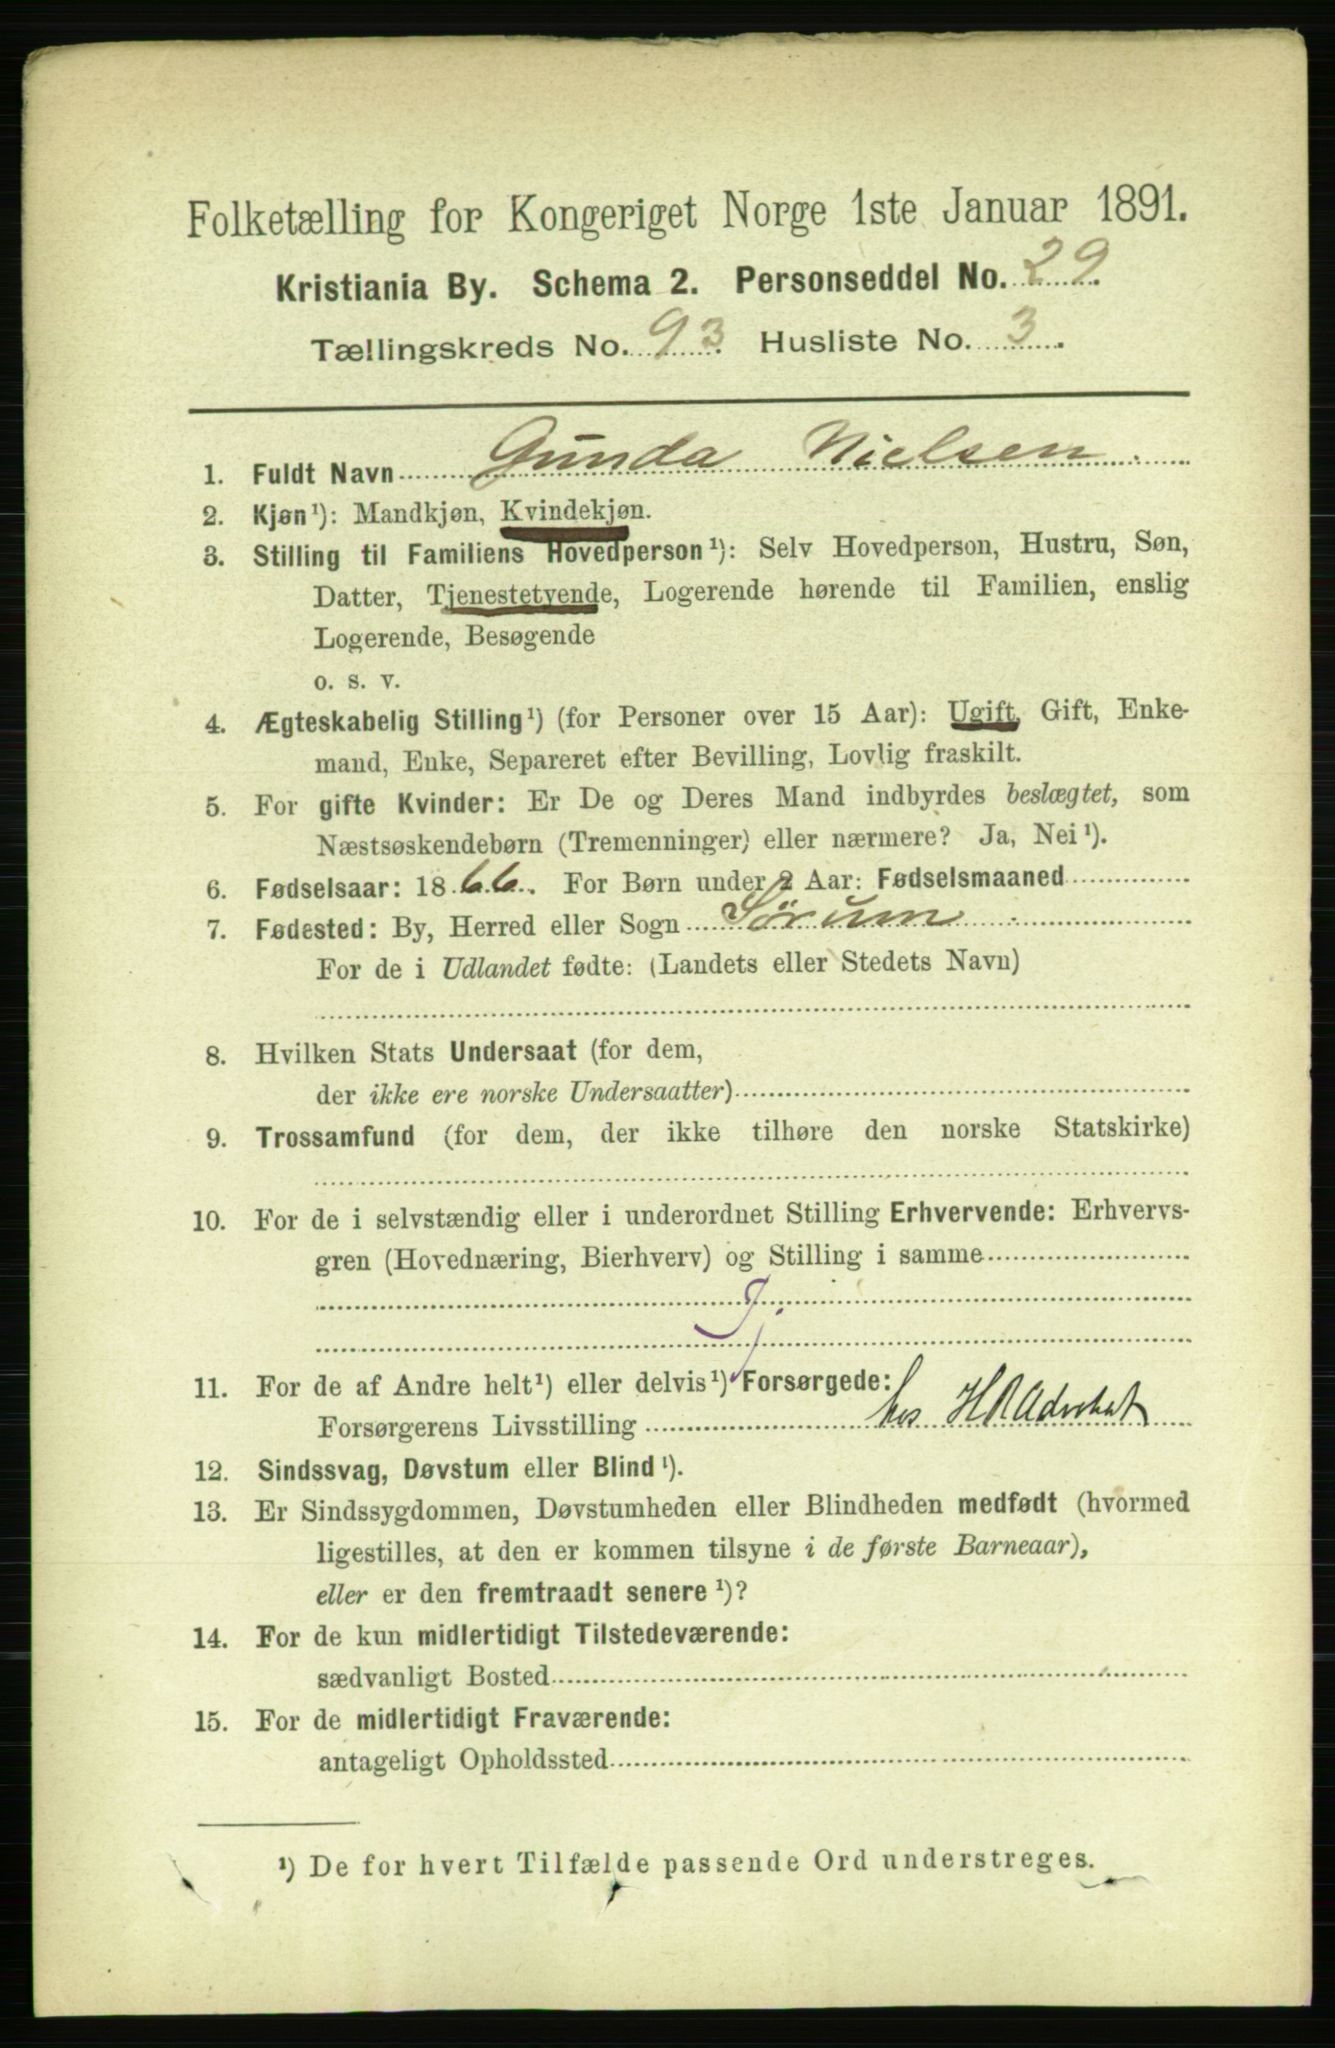 Folketælling for Kongeriget Norge 1ste Januar 1891.
Kristiania By. Schema 2. Personseddel No. 29.
Tællingskreds No. 93. Husliste No. 3.
1. Fuldt Navn Gunda Nielsen
2. Kjøn¹): Mandkjøn, Kvindekjøn.
3. Stilling til Familiens Hovedperson¹): Selv Hovedperson, Hustru, Søn,
Datter, Tjenestetyende, Logerende hørende til Familien, enslig
Logerende, Besøgende
o. s. v.
4. Ægteskabelig Stilling¹) (for Personer over 15 Aar): Ugift, Gift, Enke-
mand, Enke, Separeret efter Bevilling, Lovlig fraskilt.
5. For gifte Kvinder: Er De og Deres Mand indbyrdes beslægtet, som
Næstsøskendebørn (Tremenninger) eller nærmere? Ja, Nei¹).
6. Fødselsaar: 1866. For Børn under 2 Aar: Fødselsmaaned
7. Fødested: By, Herred eller Sogn Sørum
For de i Udlandet fødte: (Landets eller Stedets Navn)
8. Hvilken Stats Undersaat (for dem,
der ikke ere norske Undersaatter)
9. Trossamfund (for dem, der ikke tilhøre den norske Statskirke)
10. For de i selvstændig eller i underordnet Stilling Erhvervende: Erhvervs-
gren (Hovednæring, Bierhverv) og Stilling i samme
Tj.
11. For de af Andre helt¹) eller delvis¹) Forsørgede:
Forsørgerens Livsstilling hos HRAdvokat
12. Sindssvag, Døvstum eller Blind¹).
13. Er Sindssygdommen, Døvstumheden eller Blindheden medfødt (hvormed
ligestilles, at den er kommen tilsyne i de første Barneaar),
eller er den fremtraadt senere¹)?
14. For de kun midlertidigt Tilstedeværende:
sædvanligt Bosted
15. For de midlertidigt Fraværende:
antageligt Opholdssted
¹) De for hvert Tilfælde passende Ord understreges.